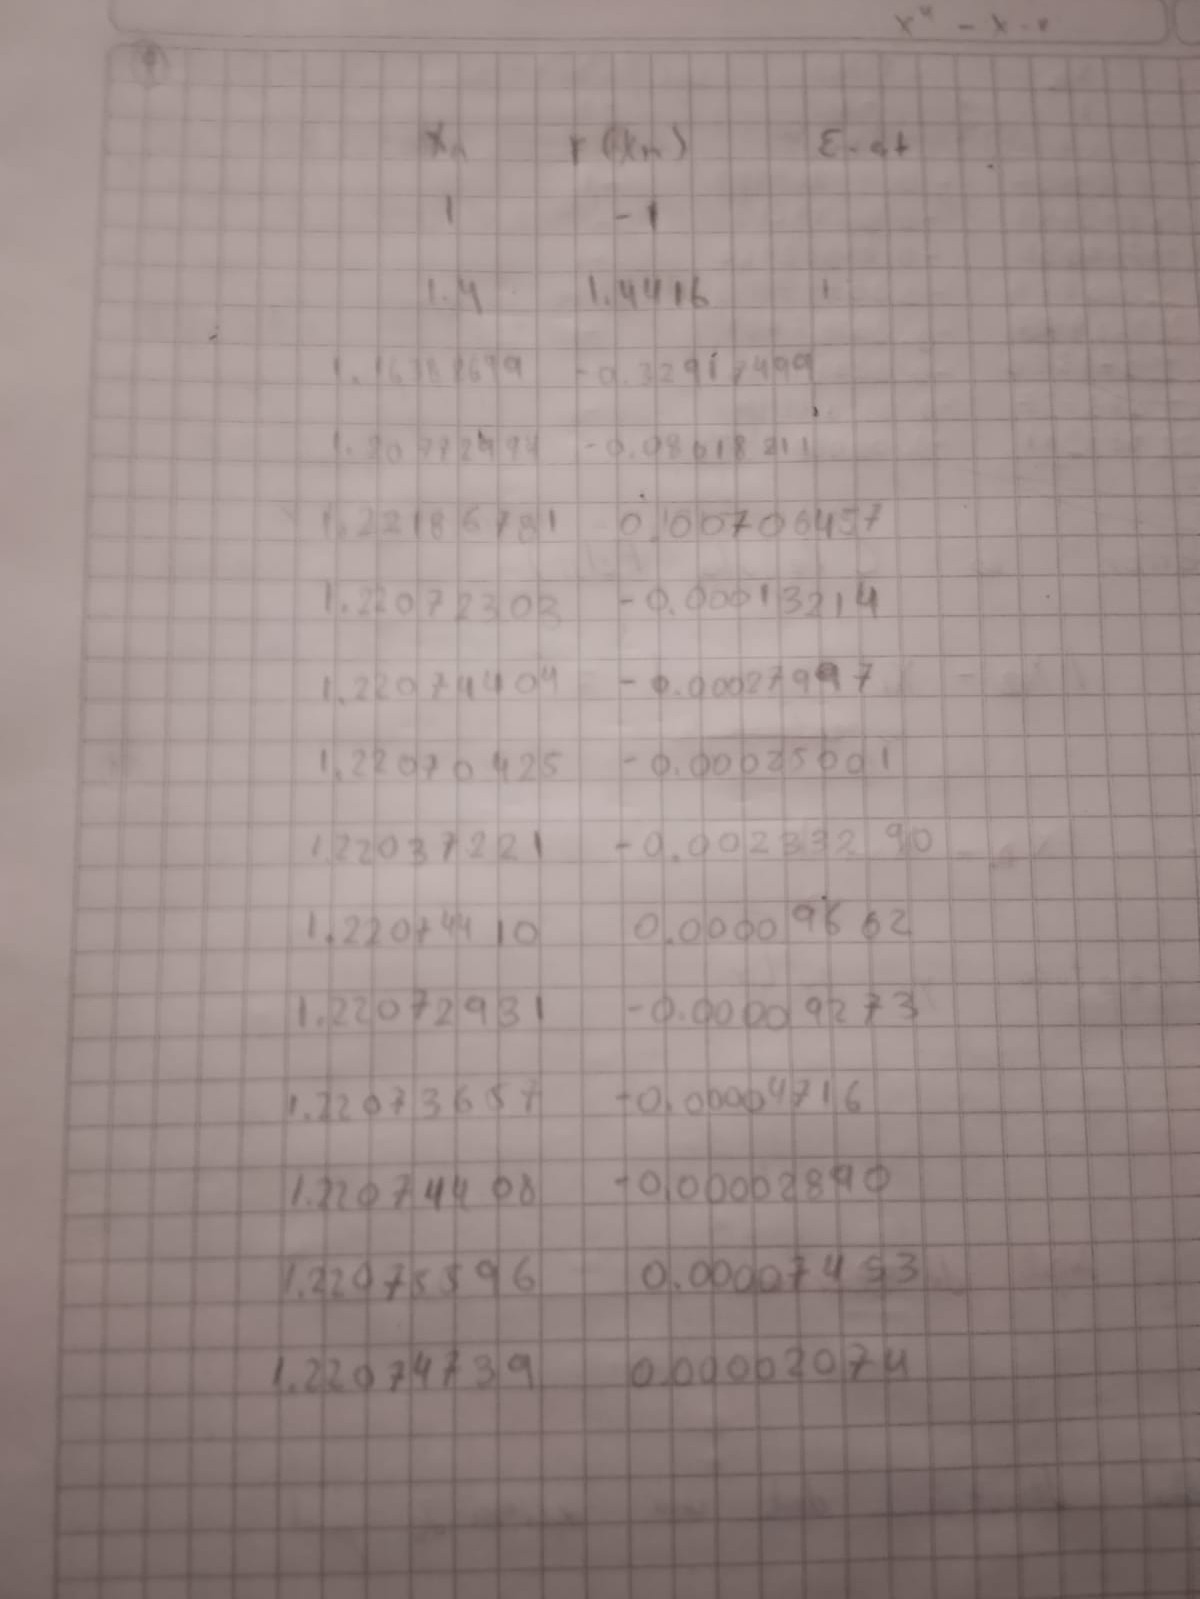 x⁴ - x -
Xn f(xn) Error
1 -1
1.4 1.4416 1
1.16382699 -0.32917499
1.20772494 -0.08018211
1.22186781 0.00706457
1.22072303 -0.00013214
1.22074404 -0.00027997
1.22070425 -0.00025001
1.22037221 -0.00233290
1.22074410 0.00009662
1.22072931 -0.00009273
1.22073657 -0.00004716
1.22074408 -0.00002890
1.22075596 0.00007453
1.22074739 0.00002074